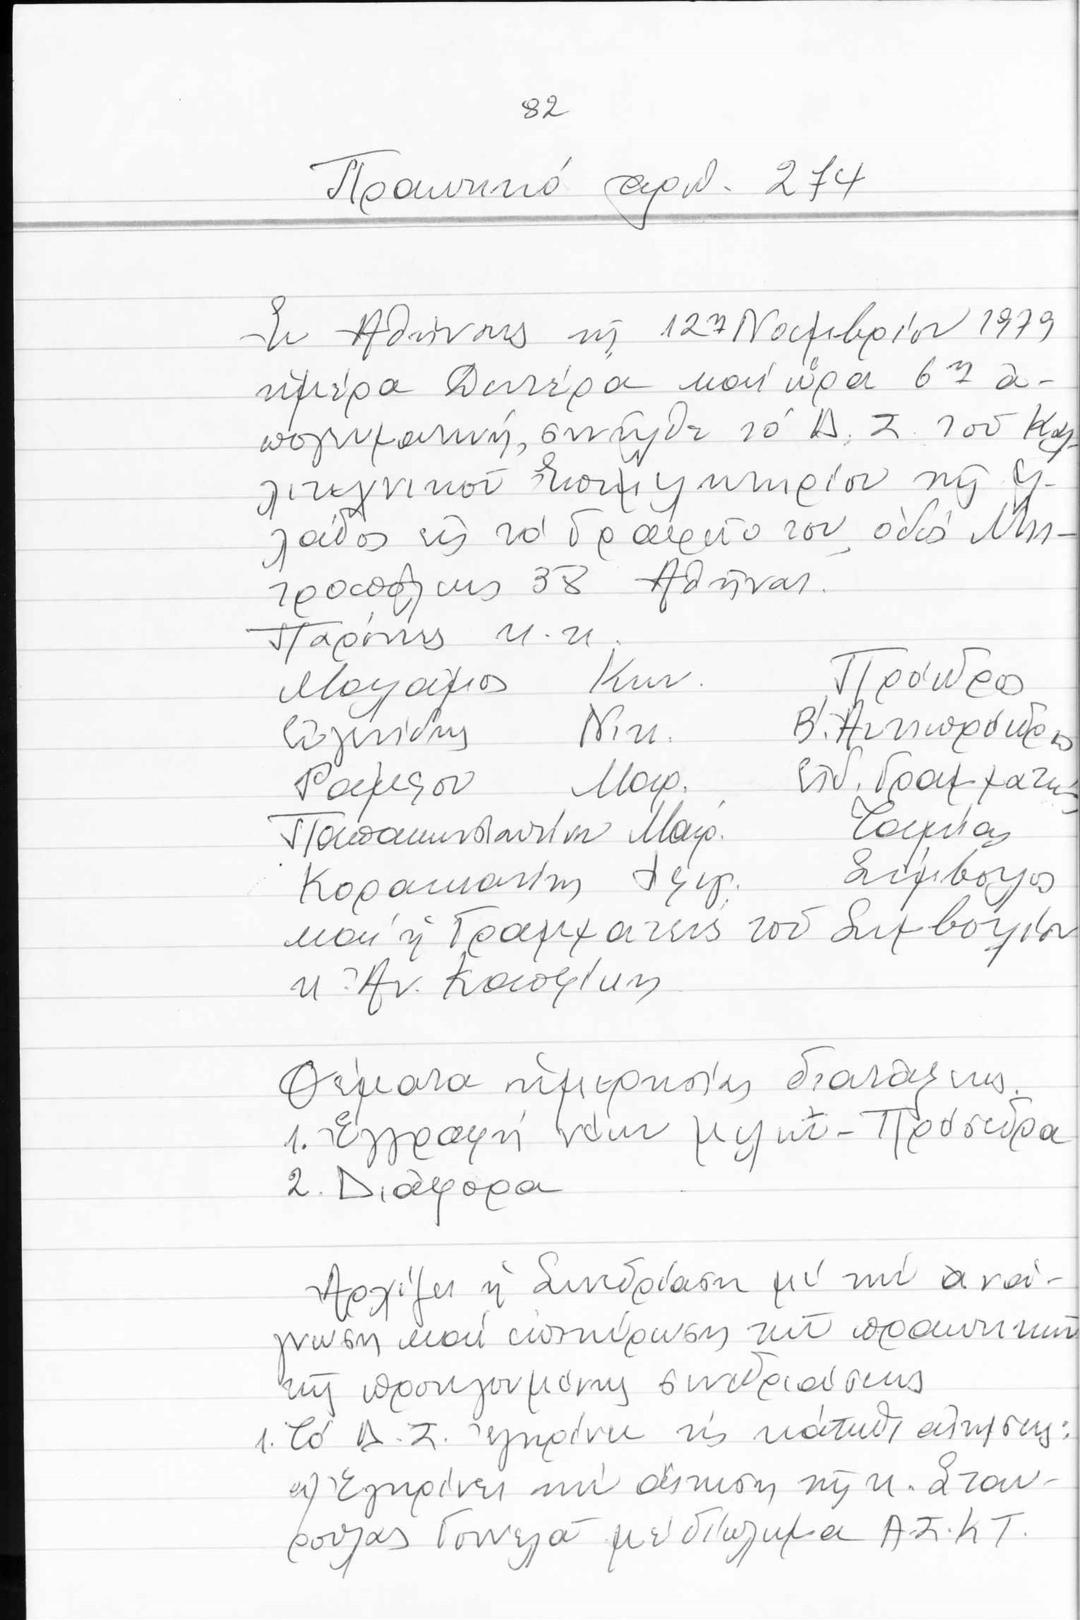 82
Πρακτικό αριθ. 274
Ἐν Ἀθήναις τῇ 12ῃ Νοεμβρίου 1979
ἡμέρα Δευτέρα καί ὥρα 6η ἀ-
πογευματινή, συνῆλθε τό Δ. Σ. τοῦ Καλ-
λιτεχνικοῦ Ἐπιμελητηρίου τῆς Ἑλ-
λάδος εἰς τό Γραφεῖο του, ὁδός Μη-
τροπόλεως 38 Ἀθῆναι.
Παρόντες κ.κ.
Κων. Πρόεδρος
Νικ. Β'. Ἀντιπρόεδρος
Ραμσου Μαρ. Εἰδ. Γραμματεύς
Παπακωνσταντίνου Μαρ. Ταμίας
Σύμβουλος
καί ἡ Γραμματεύς τοῦ Συμβουλίου
κ. Ἀν.
Θέματα ἡμερησίας διατάξεως.
1. Ἐγγραφή νέων μελῶν - Πρόσεδρα
2. Διάφορα
Ἀρχίζει ἡ Συνεδρίαση μέ τήν ἀνά-
γνωση καί ἐπικύρωση τῶν πρακτικῶν
τῆς προηγουμένης συνεδριάσεως
1. Τό Δ. Σ. ἐγκρίνει τίς κάτωθι αἰτήσεις:
α) Ἐγκρίνει τήν αἴτηση τῆς κ. Σταυ-
ρούλας Γουνελᾶ μέ δίπλωμα Α.Σ.Κ.Τ.